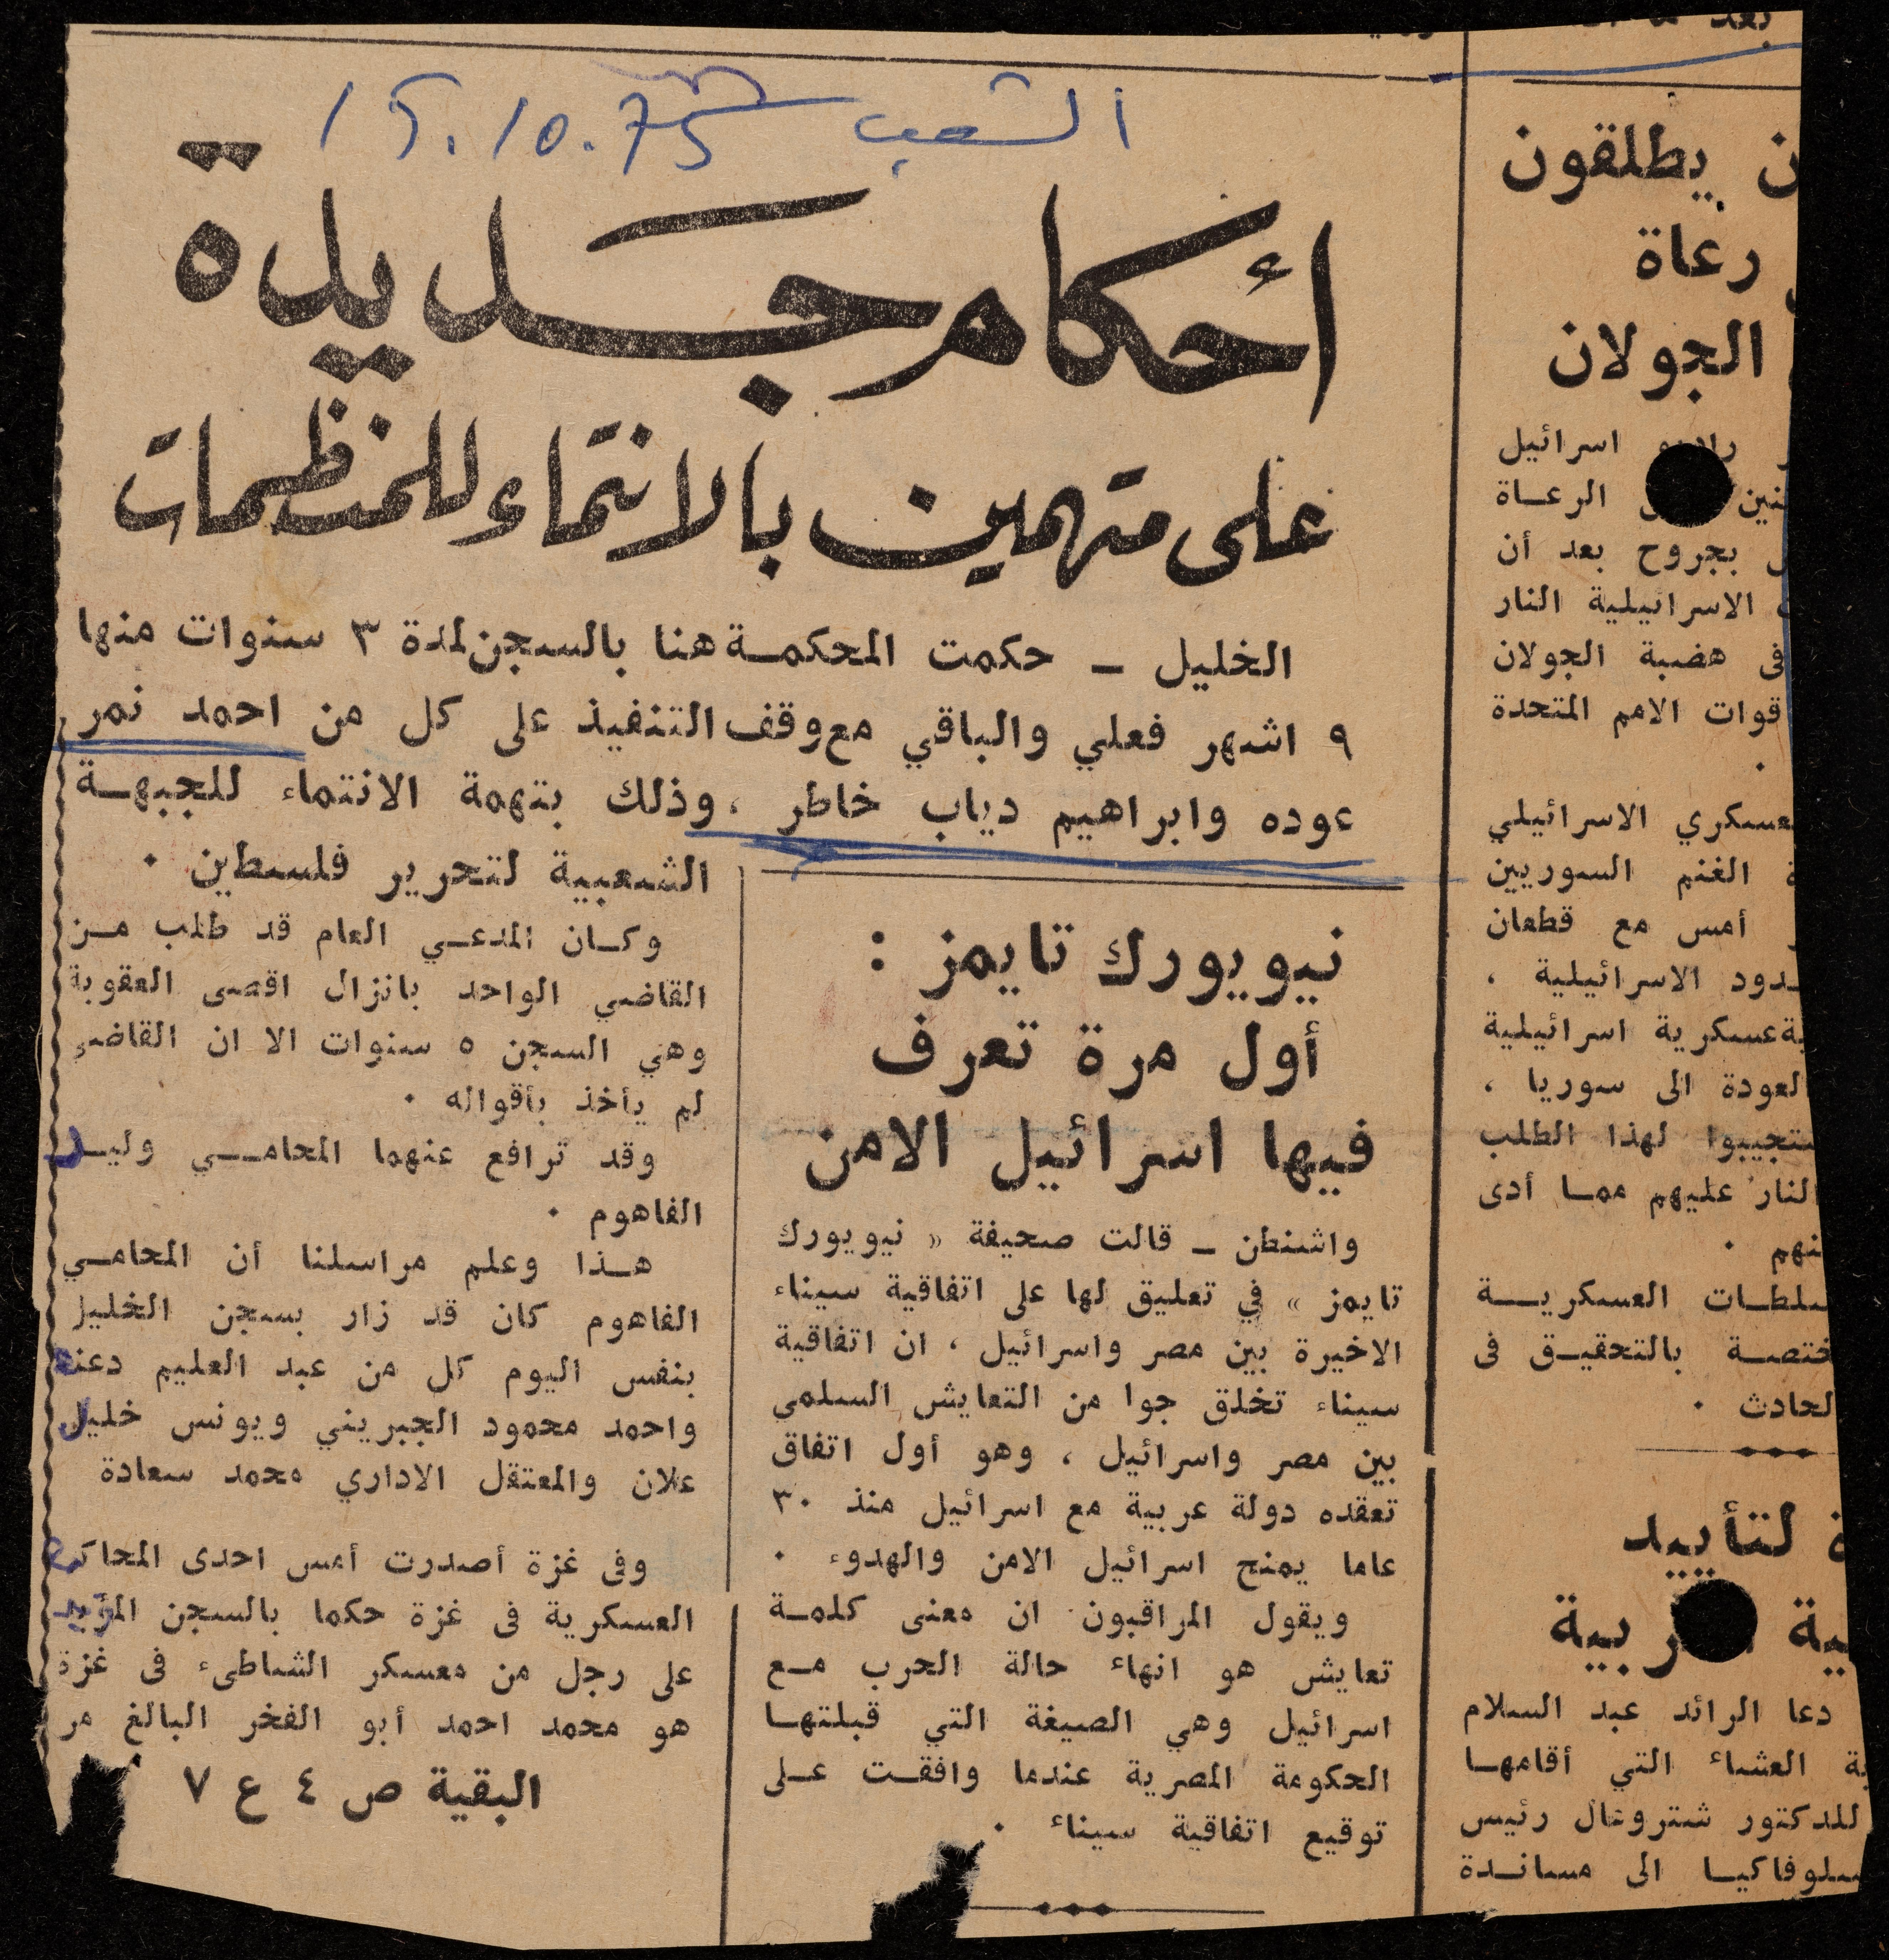 الشعب 15.10.75
أحكام جديدة
على متهمين بالانتماء للمنظمات
الخليل ــ حكمت المحكمــة هنا بالسجن لمدة ٣ سنوات منها
٩ اشهر فعلي والباقي مع وقف التنفيذ على كل من احمد نمر
عوده وابراهيم دياب خاطر ، وذلك بتهمة الانتماء للجبهــة
الشعبية لتحرير فلسطين ٠
وكــان المدعــي العام قد طلب مــن
القاضي الواحد بانزال اقصى العقوبة
وهي السجن ٥ سنوات الا ان القاضي
لم يأخذ بأقواله ٠
وقد ترافع عنهما المحامــي وليــد
الفاهوم ٠
هــذا وعلم مراسلنا أن المحامــي
الفاهوم كان قد زار بسجن الخليل
بنفس اليوم كل من عبد العليم دعنة
واحمد محمود الجبريني ويونس خليل
علان والمعتقل الاداري محمد سعادة
وفى غزة أصدرت أمس احدى المحاكم
العسكرية فى غزة حكما بالسجن المؤبد
على رجل من معسكر الشاطىء فى غزة
هو محمد احمد أبو الفخر البالغ من
البقية ص ٤ ع ٧
نيويورك تايمز :
أول مرة تعرف
فيها اسرائيل الامن
واشنطن ــ قالت صحيفة « نيويورك
تايمز » في تعليق لها على اتفاقية سيناء
الاخيرة بين مصر واسرائيل ، ان اتفاقية
سيناء تخلق جوا من التعايش السلمي
بين مصر واسرائيل ، وهو أول اتفاق
تعقده دولة عربية مع اسرائيل منذ ٣٠
عاما يمنح اسرائيل الامن والهدوء ٠
ويقول المراقبون ان معنى كلمــة
تعايش هو انهاء حالة الحرب مــع
اسرائيل وهي الصيغة التي قبلتهــا
الحكومة المصرية عندما وافقــت علــى
توقيع اتفاقية سيناء ٠
ن يطلقون
رعاة
الجولان
راديو اسرائيل
الرعــاة
بجروح بعد أن
الاسرائيلية النار
فى هضبة الجولان
قوات الامم المتحدة
٠
عسكري الاسرائيلي
الغنم السوريين
أمس مع قطعان
ــدود الاسرائيلية ،
ية عسكرية اسرائيلية
العودة الى سوريا ،
ستجيبوا لهذا الطلب
النار عليهم ممــا أدى
نهم ٠
سلطــات العسكريــة
ختصــة بالتحقيــق فى
لحادث ٠
ة لتأييد
ية ربية
دعا الرائد عبد السلام
ة العشاء التي أقامهــا
للدكتور شتروغال رئيس
سلوفاكيــا الى مسانــدة